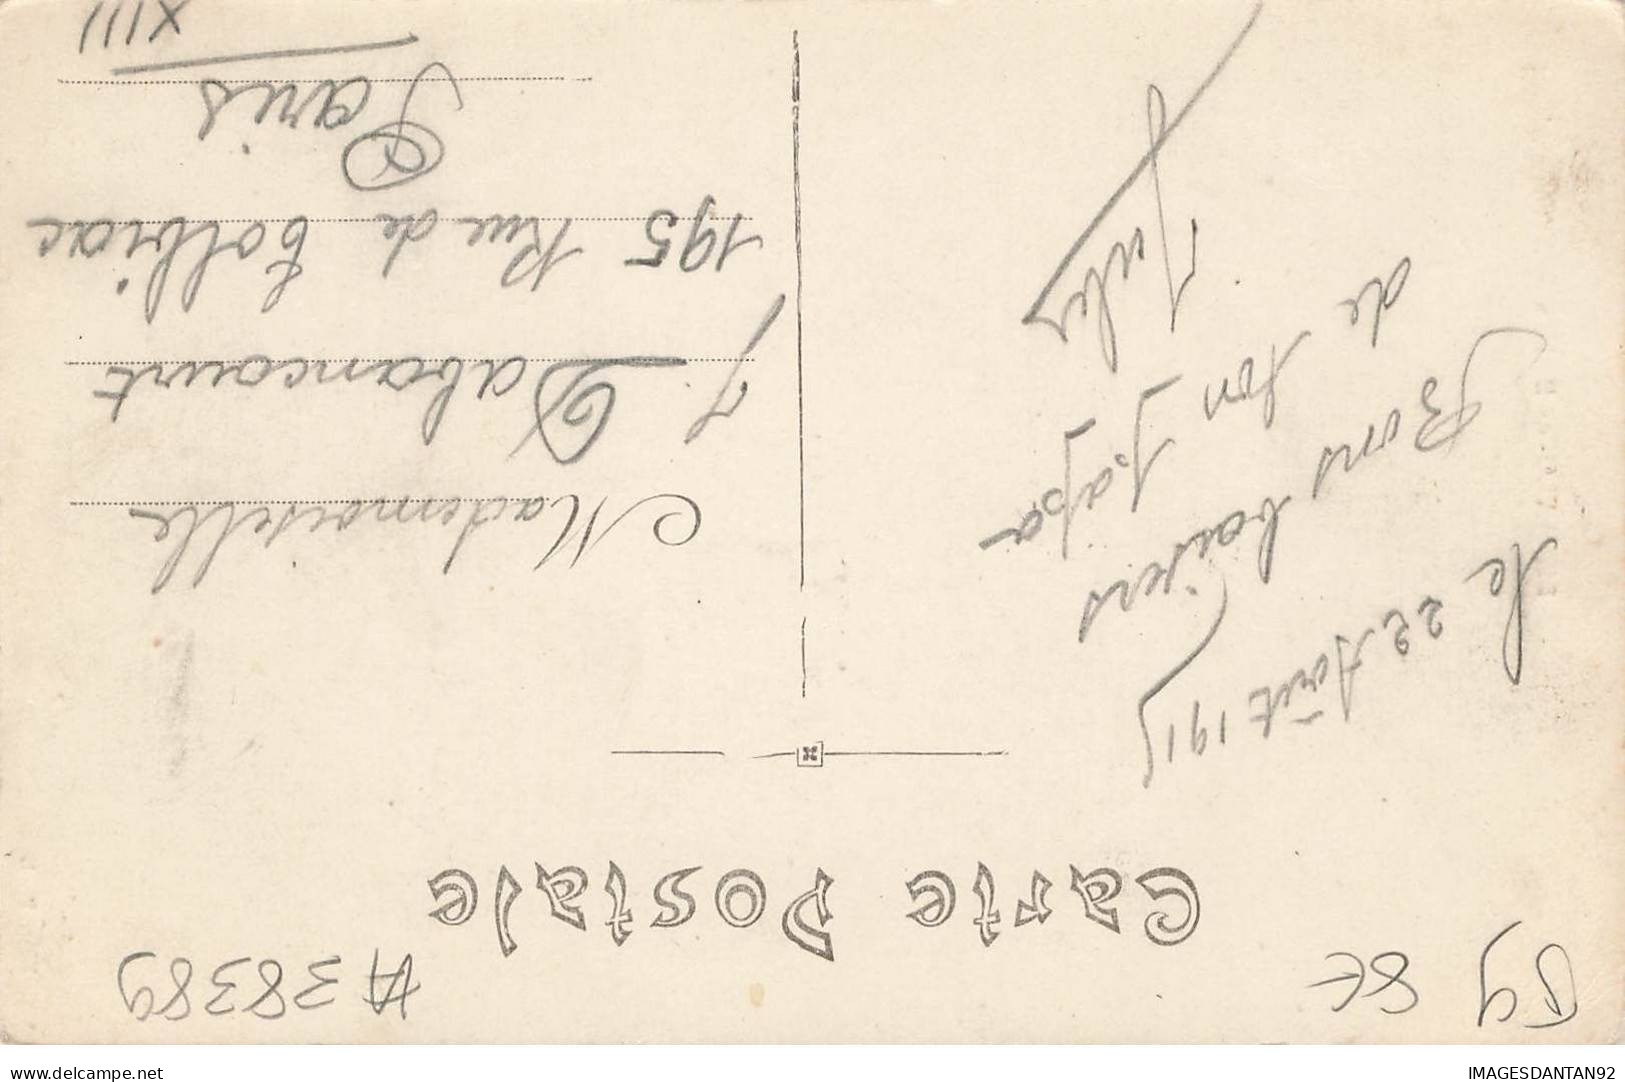 59
8€
A38389
Carte Postale
le 22 Août 1915
Bons baisers
de ton papa
Jules
Mademoiselle
J. Dabancourt
195 Rue de Tolbiac
Paris
XIII
delcampe.net
IMAGESDANTAN92